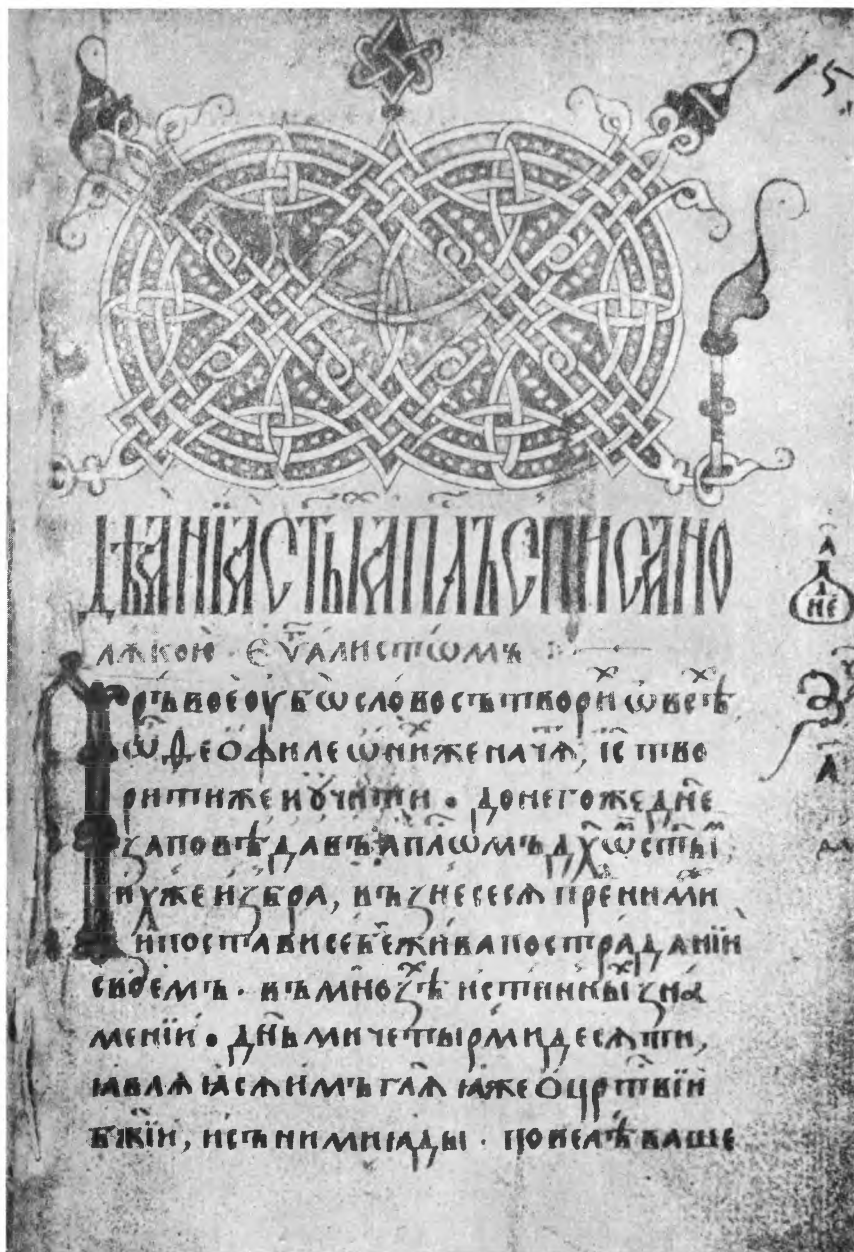 15.
дѣꙗнїꙗ ст҃ы а҃плъ списано
лꙋкою еѵ҃алистѡмъ :
Прьвое оубѡ слово сътвори́ х ѡ в сѣ х
ѡ҃ ѳеѡ҃филе ѡ ниже нач ѧ, і҃с тво
рити же и оучити • до него же дн҃е
заповѣдавъ а҃плѡмъ дх҃ѡ м ст҃ы м
и х же избра, възнесесѧ пре ними
и постави себе жива по страданїи
своемъ · въ мноѕѣ х истинны х зна
менїи • дн҃ьми четырми десѧти,
ꙗвлѧꙗсѧ имъ гл҃ѧ ꙗже о цр҃ствїи
бж҃їи, и с ними ꙗды · повелѣваше